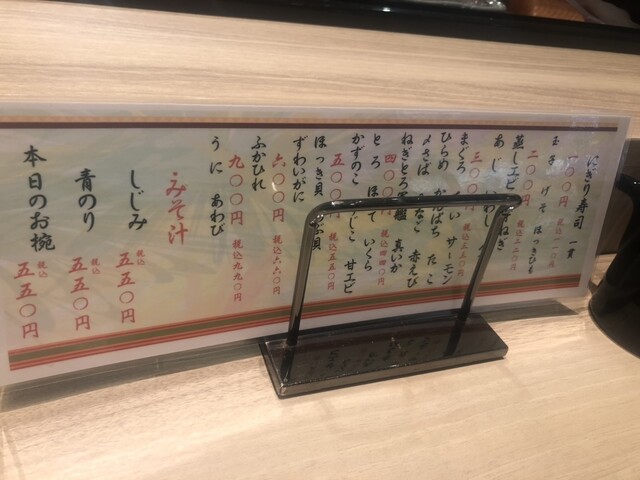 にぎり寿司 一貫
一〇〇円 税込一一〇円
玉子 げそ ほっきひも
二〇〇円 税込二二〇円
蒸しエビ
あじ いわし
三〇〇円 税込三三〇円
まぐろ サーモン
ひらめ かんぱち たこ
〆さば あなご 赤えび
ねぎとろ軍艦 真いか
四〇〇円 税込四四〇円
とろ ほたて いくら
かずのこ 甘エビ
五〇〇円 税込五五〇円
ほっき貝
ずわいがに
六〇〇円 税込六六〇円
ふかひれ
九〇〇円 税込九九〇円
うに あわび
みそ汁
しじみ 税込五五〇円
青のり 税込五五〇円
本日のお椀 税込五五〇円